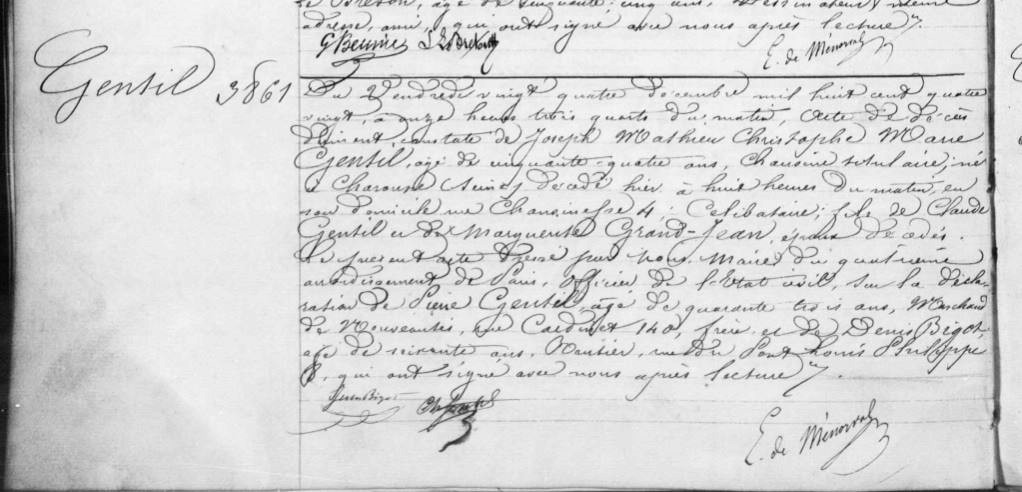 Le Breton, âgé de cinquante-cinq ans, Dessinateur, même
adresse, ami, qui ont signé avec nous après lecture.
E. de Ménorval
Gentil 3861
Du Vendredi vingt quatre décembre mil huit cent quatre
vingt, à onze heures trois quarts du matin, Acte de décès
dûment constaté de Joseph Mathieu Christophe Marie
Gentil, âgé de cinquante-quatre ans, Chanoine titulaire, né
à Charonne (Seine) décédé hier à huit heures du matin, en
son domicile rue Chanoinesse 4; Célibataire; fils de Claude
Gentil et de Marguerite Grand-Jean, époux décédés.
Le présent acte dressé par nous, Maire du quatrième
arrondissement de Paris, Officier de l'Etat civil, sur la décla-
ration de Pierre Gentil, âgé de quarante trois ans, Marchand
de Nouveautés, rue Cardinet 140, frère et de Denis Bigot,
âgé de soixante ans, Rentier, rue du Pont Louis Philippe
8, qui ont signé avec nous après lecture.
E. de Ménorval